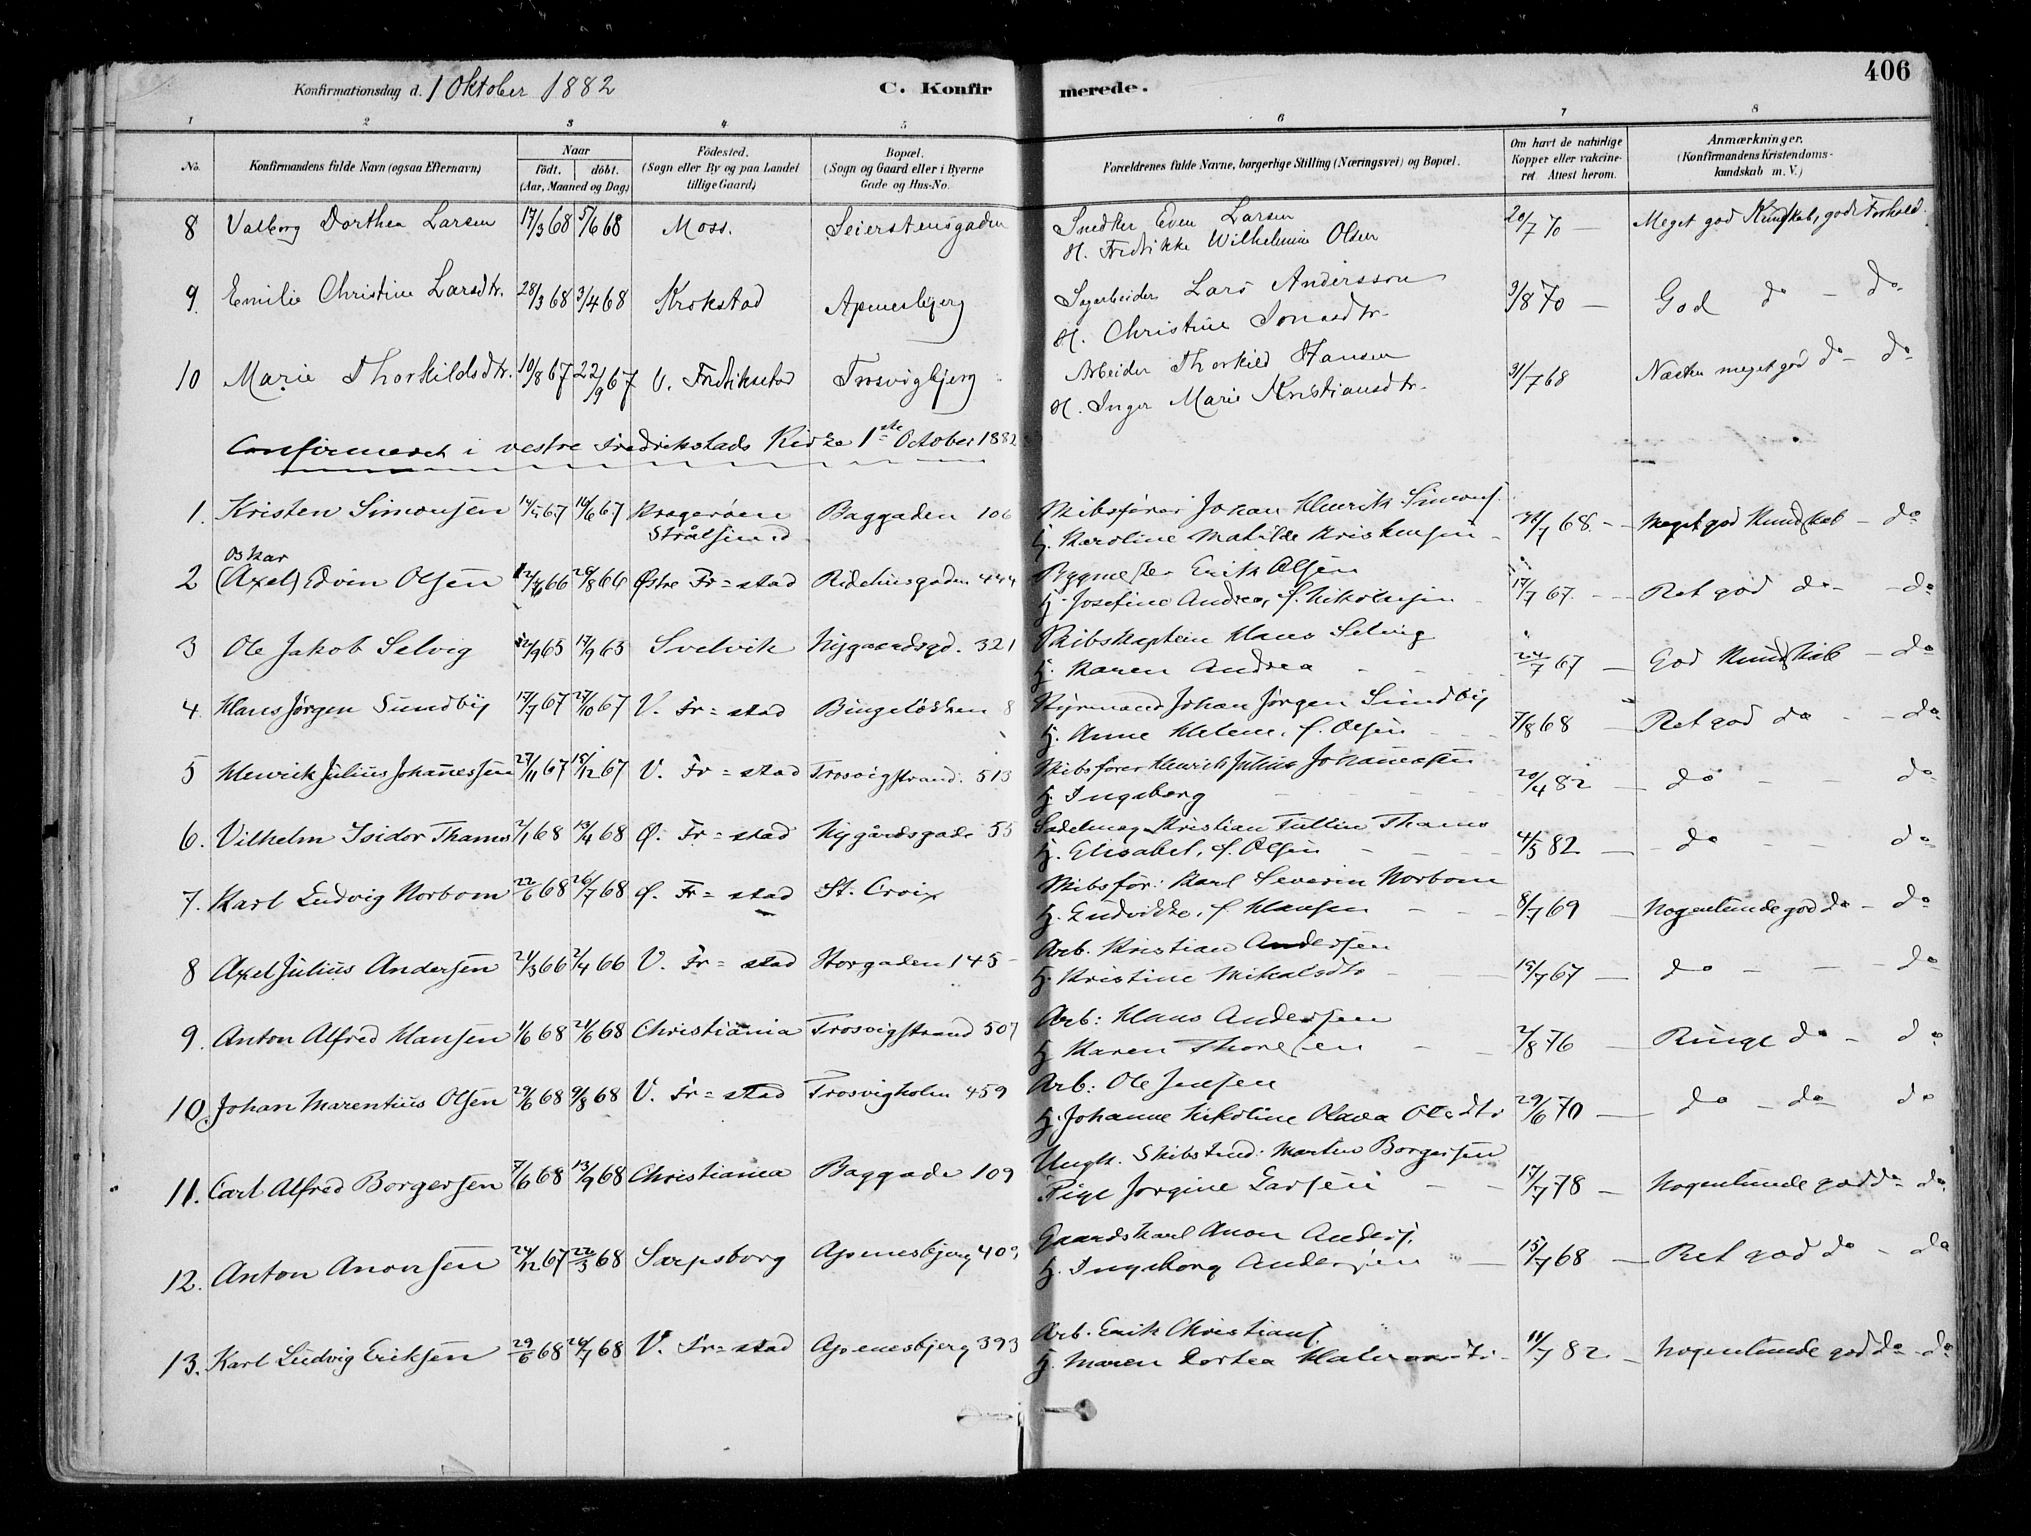 406
Konfirmationsdag d. 1 Oktober 1882 C. Konfirmerede.
1 2 3 4 5 6 7 8
No. Konfirmandens fulde Navn (ogsaa Efternavn) Naar födt. döbt. (Aar, Maaned og Dag) Födested. (Sogn eller By og paa Landet tillige Gaard) Bopæl. (Sogn og Gaard eller i Byerne Gade og Hus-No. Forældrenes fulde Navne, borgerlige Stilling (Næringsvei) og Bopæl. Om havt de naturlige Kopper eller vakcineret. Attest herom. Anmærkninger. (Konfirmandens Kristendomskundskab m. V.)
8 Valborg Dorthea Larsen 17/3 68 5/6 68 Moss. Seierstensgaden Snedker Even Larsen 20/7 70 — Meget god Kundskab, godt Forhold.
H. Fredrikke Wilhelmine Olsen
9. Emilie Christine Larsdtr. 28/3 68 3/4 68 Krokstad Apenesbjerg Sagarbeider Lars Andersson 3/8 70 — God do — do
H. Christine Jonasdtr.
10 Marie Thorkildsdtr. 10/8 67 22/9 67 V. Fredrikstad Trosvigbjerg Arbeider Thorkild Hansen 31/7 68 Næsten meget god do — do
H. Inger Marie Kristiansdtr.
Confirmeret i vestre Fredrikstads Kirke 1ste October 1882
1. Kristen Simonsen 14/5 67 16/6 67 Kragerøen Baggaden 106 Skibsfører Johan Henrik Simons. 31/7 68. — Meget god Kundskab — do
Strålsund H. Karoline Matilde Kristensen
Oskar
2 (Axel) Edvin Olsen 12/6 66 26/8 66 Østre Fr=stad Ridehusgaden 444 Bygmester Erik Olsen 17/7 67. — Ret god do — do
H. Josefine Andrea, f. Nikolaisen
3 Ole Jakob Selvig 2/9 65 17/9 65 Svelvik Nygaardsgd. 321 Skibskaptein Hans Selvig 24/7 67 — God Kundskab — do
H. Karen Andrea
4. Hans Jørgen Sundby 17/7 67 27/10 67 V. Fr=stad Bingeløkken 8 Styrmand Johan Jørgen Sundby 7/8 68 — Ret god do — do
H. Anne Helene, f. Olsen
5 Henrik Julius Johannessen 27/11 67 15/12 67 V. Fr=stad Trosvigstrand. 513 Skibsfører Henrik Julius Johannessen 20/4 82 — do — do
H. Ingeborg
6. Vilhelm Isidor Thams 2/1 68 13/4 68 Ø. Fr=stad Nygårdsgade 55 Sadelmag. Kristian Tullin Thams 4/5 82 — do — do
H. Elisabet, f. Olsen
7. Karl Ludvig Norbom 22/6 68 26/7 68 Ø. Fr=stad St. Croix Skibsfør: Karl Severin Norbom 8/7 69 — Nogenlunde god do — do
H. Ludvikke, f. Hansen
8 Axel Julius Andersen 21/3 66 2/4 66 V. Fr=stad Storgaden 145 Arb. Kristian Andersen 15/7 67 — do — do
H. Kristine Mikalsdtr
9. Anton Alfred Hansen 1/6 68 21/6 68 Christiania Trosvigstrand 507 Arb: Hans Andersen 2/8 76 — Ringe do — do
H. Karen Thoresen
10. Johan Marentius Olsen 29/6 68 9/8 68 V. Fr=stad Trosvigholm 459 Arb: Ole Jensen 29/6 70 — do — do do
H. Johanne Nikoline Olava Olsdtr
11. Carl Alfred Borgersen 7/6 68 13/9 68 Christiania Baggade 109 Ungk. Skibstmd: Martin Borgersen 17/7 78 — Nogenlunde god do — do
Pige Jørgine Larsen
12. Anton Anonsen 24/12 67 22/3 68 Sarpsborg Apenesbjerg 409 Gaardskarl Anon Anders. 15/7 68 — Ret god do — do
H. Ingeborg Andersen
13. Karl Ludvig Eriksen 29/6 68 26/7 68 V. Fr=stad Apenesbjerg 393 Arb. Erik Christians. 11/7 82 — Nogenlunde god do — do
H. Maren Dortea